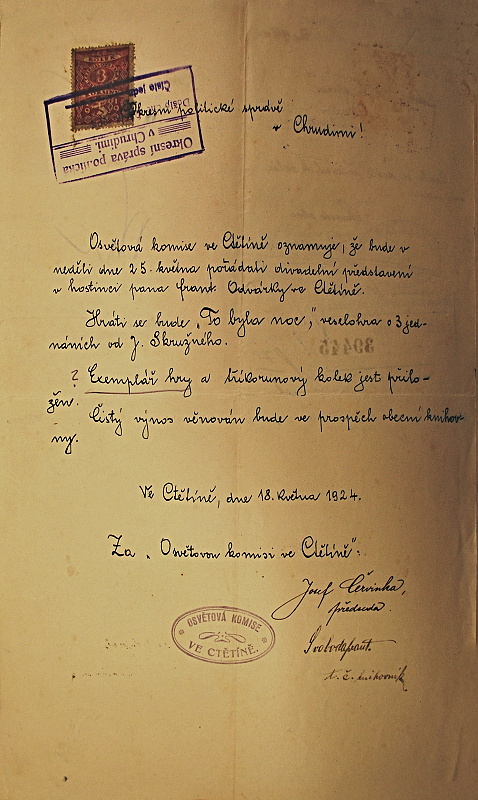 KOLEK
3
Okresní správa politická
v Chrudimi.
Došlo
Číslo jedn.
Okresní politické správě
v Chrudimi!
Osvětová komise ve Ctětíně oznamuje, že bude v
neděli dne 25. května pořádati divadelní představení
v hostinci pana Frant. Odvárky ve Ctětíně.
Hráti se bude „To byla noc,“ veselohra o 3 jed-
náních od J. Skružného.
? Exemplář hry a tříkorunový kolek jest přilo-
žen.
Čistý výnos věnován bude ve prospěch obecní knihov-
ny.
39445
Ve Ctětíně, dne 18. května 1924.
Za „Osvětovou komisi ve Ctětíně“:
Josef Červinka,
předseda.
OSVĚTOVÁ KOMISE
VE CTĚTÍNĚ.
Svoboda Frant.
t. č. knihovník